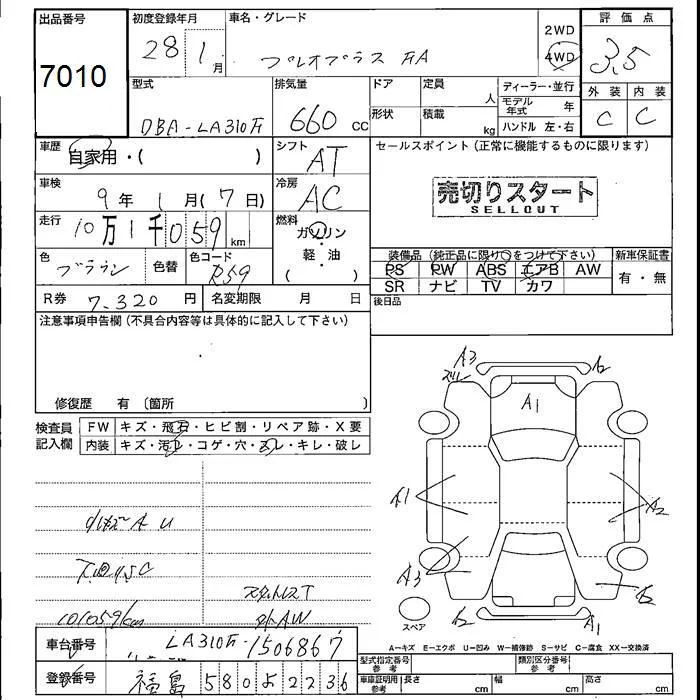 出品番号
7010
初度登録年月
28年 1月
車名・グレード
プレオプラス FA
2WD
4WD
評価点
3.5
外装 内装
C C
型式
DBA-LA310F
排気量
660 cc
ドア
形状
定員
人
積載
kg
ディーラー・並行
モデル年式 年
ハンドル 左・右
車歴
自家用・( )
シフト
AT
セールスポイント(正常に機能するものに限ります)
売切りスタート
SELLOUT
車検
9年 1月(7日)
冷房
AC
走行
10万1千059 km
燃料
ガソリン
軽・油
( )
色
ブラウン
色替
色コード
R59
装備品(純正品に限り○をつけて下さい)
PS PW ABS エアB AW
SR ナビ TV カワ
新車保証書
有・無
後日品
R券
7,320円
名変期限 月 日
注意事項申告欄(不具合内容等は具体的に記入して下さい)
修復歴 有(箇所 )
検査員記入欄
FW キズ・飛石・ヒビ割・リペア跡・X要
内装 キズ・汚れ・コゲ・穴・スレ・キレ・破レ
小キズ A U
101059km
スタッドレスT
外AW
A3
A2
A1
A1
A2
A3
A2
A1
スペア
A−キズ E−エクボ U−凹み W−補修跡 S−サビ C−腐食 XX−交換済
車台番号
LA310F-1506867
登録番号
福島 580 2236
型式指定番号
参考
類別区分番号
参考
車庫証明用
参考
長さ cm
幅 cm
高さ cm